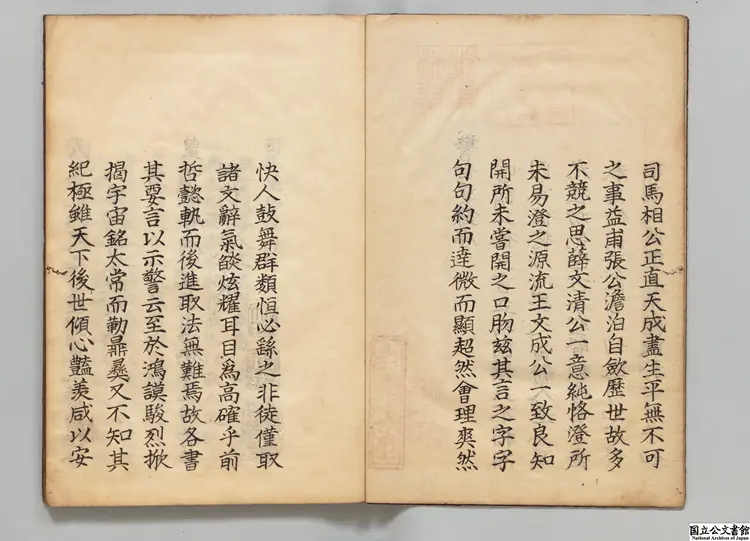 司馬相公正直天成盡生平無不可
之事益甫張公澹泊自斂歷世故多
不競之思薛文清公一意純恪澄所
未易澄之源流王文成公一致良知
開所未嘗開之口吻玆其言之字字
句句約而逹微而顯超然會理爽然
快人鼓舞群類恒必繇之非徒僅取
諸文辭氣燄炫耀耳目為高確乎前
哲懿軌而後進取法無難焉故各書
其要言以示警云至於鴻謨駿烈掀
揭宇宙銘太常而勒鼎彞又不知其
紀極雖天下後世傾心豔羨咸以安
国立公文書館
National Archives of Japan